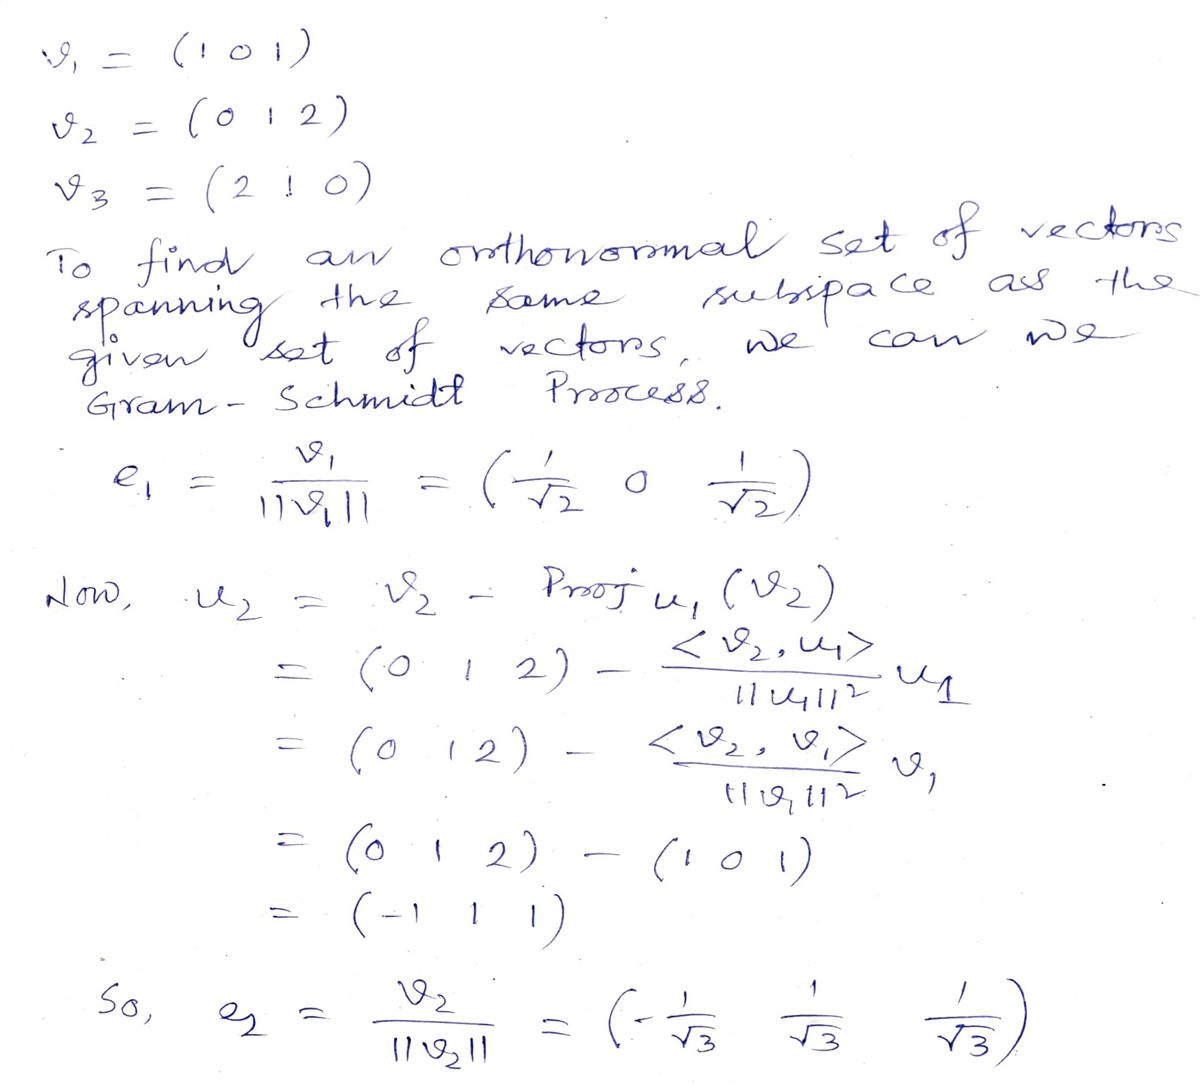 v₁ = (1 0 1)
v₂ = (0 1 2)
v₃ = (2 1 0)
To find an orthonormal set of vectors
spanning the same subspace as the
given set of vectors, we can use
Gram-Schmidt Process.
e₁ = v₁ / ||v₁|| = (1/√2 0 1/√2)
Now, u₂ = v₂ - Proj u₁ (v₂)
= (0 1 2) - <v₂, u₁> / ||u₁||² u₁
= (0 1 2) - <v₂, v₁> / ||v₁||² v₁
= (0 1 2) - (1 0 1)
= (-1 1 1)
So, e₂ = v₂ / ||v₂|| = (-1/√3 1/√3 1/√3)